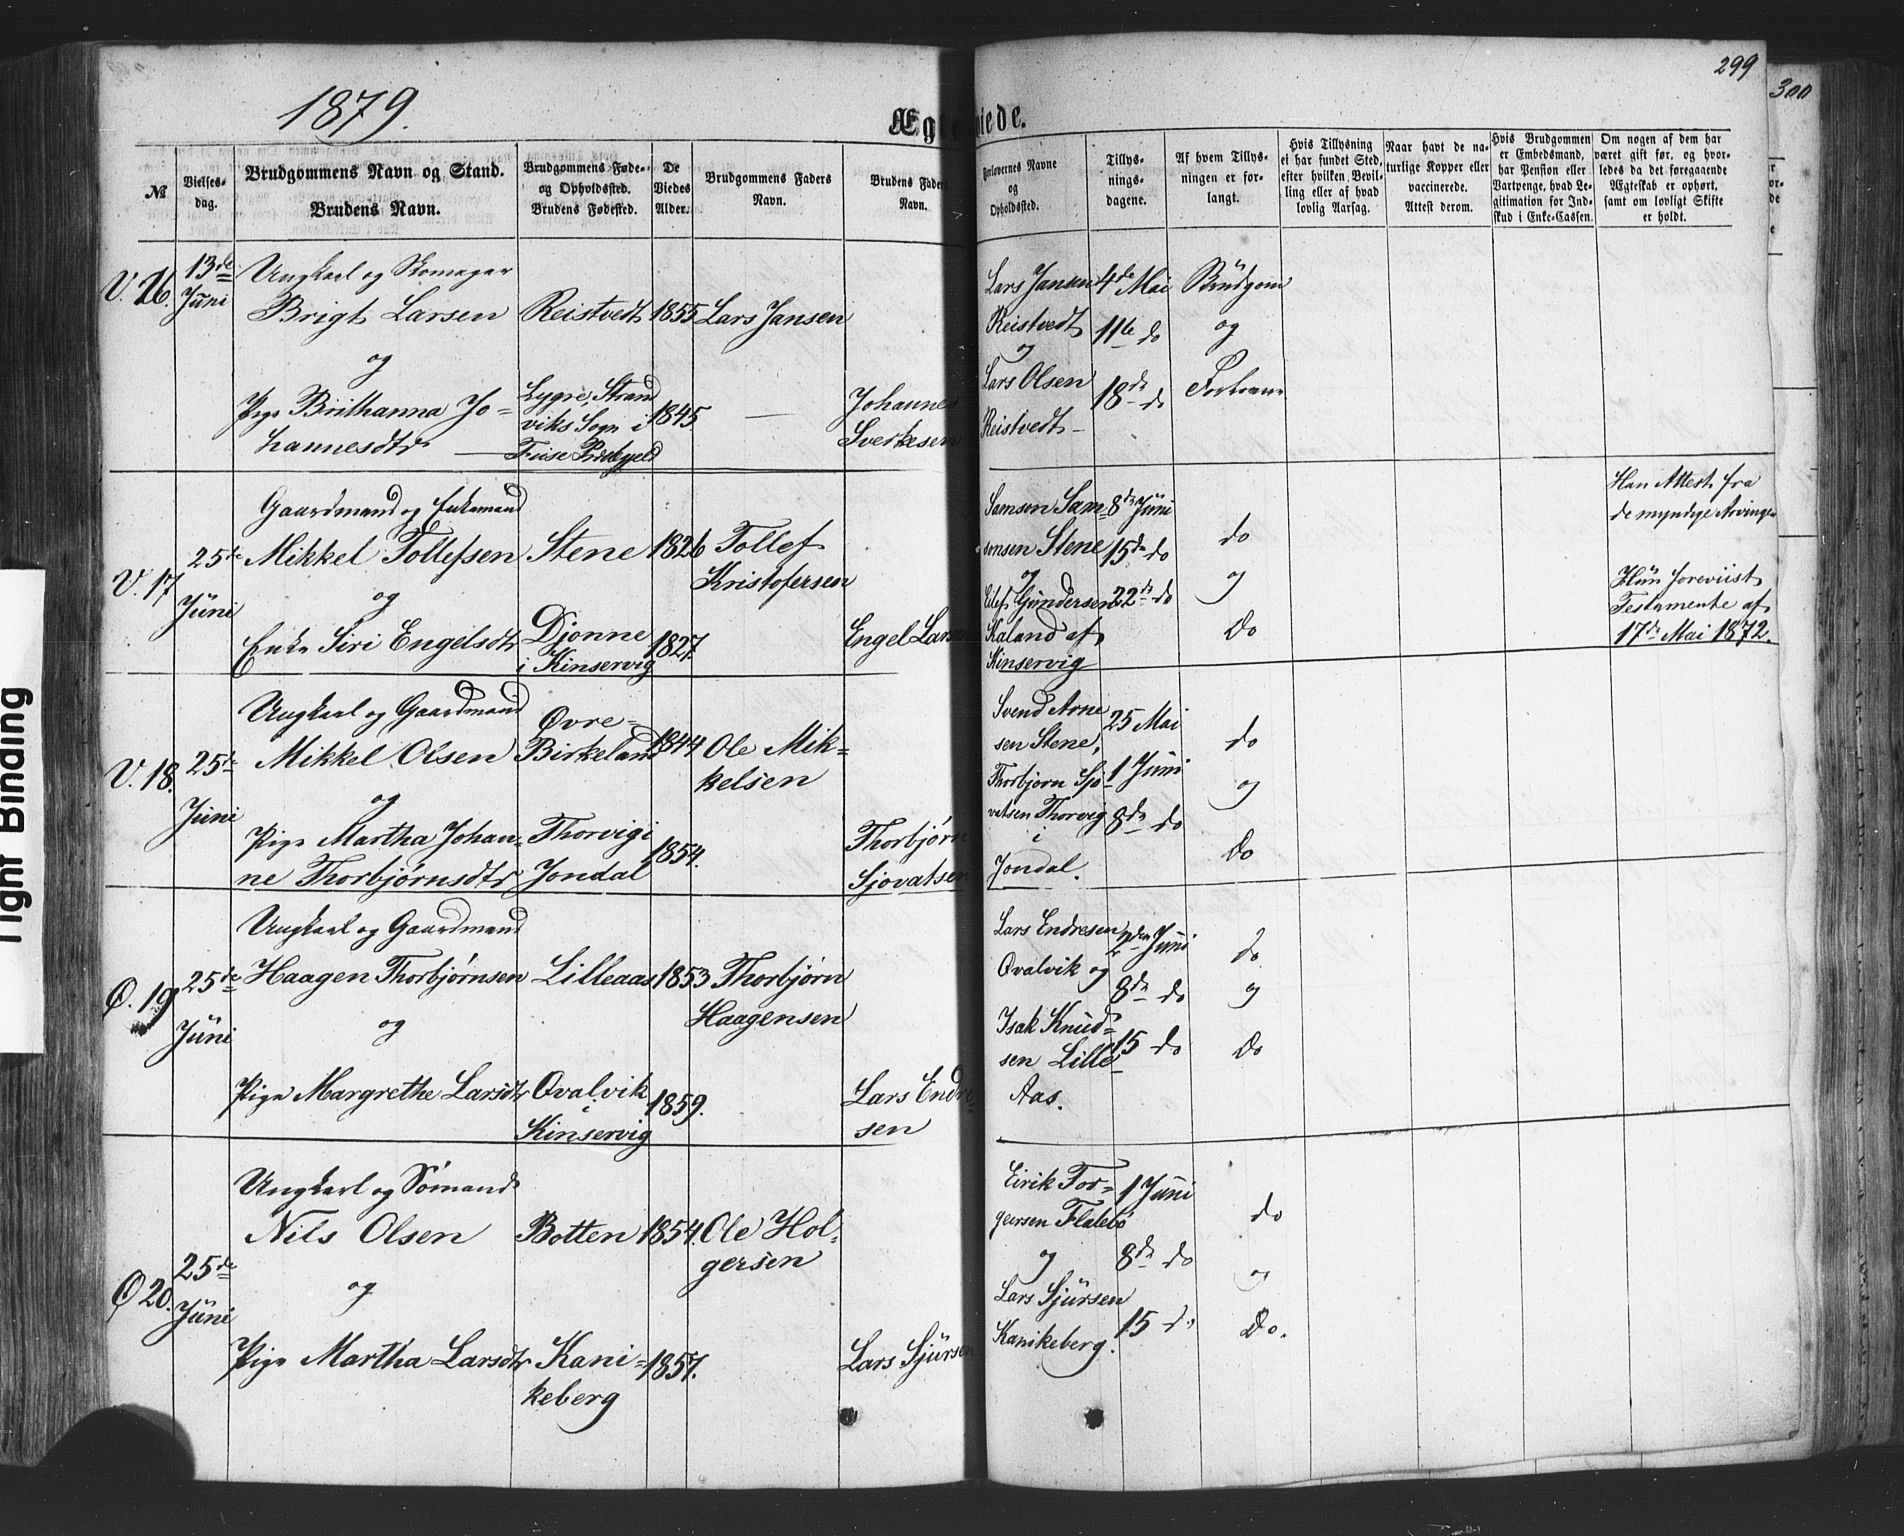 299
300
1879.
Ægteviede.
№
Vielses-
dag.
Brudgommens Navn og Stand.
Brudens Navn.
Brudgommens Føde-
og Opholdssted.
Brudens Fødested.
De
Viedes
Alder.
Brudgommens Faders
Navn.
Brudens Faders
Navn.
Forlovernes Navne
og
Opholdssted.
Tillys-
nings-
dagene.
Af hvem Tillys-
ningen er for-
langt.
Hvis Tillysning
ei har fundet Sted,
efter hvilken Bevil-
ling eller af hvad
lovlig Aarsag.
Naar havt de na-
turlige Kopper eller
vaccinerede.
Attest derom.
Hvis Brudgommen
er Embedsmand,
har Pension eller
Vartpenge, hvad Le-
gitimation for Ind-
skud i Enke-Cassen.
Om nogen af dem har
været gift før, og hvor-
ledes da det foregaaende
Ægteskab er ophørt,
samt om lovligt Skifte
er holdt.
V. 16.
13de
Juni
Ungkarl og Skomager
Brigt Larsen
og
Pige Brithanna Jo-
hannesdtr
Reistvedt
Lygre, Strand
viks Sogn i
Fuse Prstegjeld
1855
1845
Lars Jansen
—
Johannes
Sverkesen
Lars Jansen
Reistvedt
og
Lars Olsen
Reistvedt
4de Mai
11te do
18de do
Brudgom
og
Forlover
V. 17
25de
Juni
Gaardmand og Enkemand
Mikkel Tollefsen
og
Enke Siri Engelsdtr
Stene
Djonne
i Kinservig
1826
1827.
Tollef
Kristofersen
Engel Larsen
Samson Sam-
sonsen Stene
og
Eilef Gundersen
Kaland af
Kinservig
8de Juni
15de do
22de do
do
og
do
Han Attest fra
de myndige Arvinge
Hun foreviist
Testamente af
17de Mai 1872.
V. 18.
25de
Juni
Ungkarl og Gaardmand
Mikkel Olsen
og
Pige Martha Johan-
ne Thorbjørnsdtr
Øvre-
Birkeland
Thorvig i
Jondal
1844
1854.
Ole Mik-
kelsen
Thorbjørn
Sjovatsen
Svend Arne
sen Stene,
Thorbjørn Sjo-
vatsen Thorvig
i
Jondal.
25 Mai
1 Juni
8de do
do
og
do
Ø. 19
25de
Juni
Ungkarl og Gaardmand
Haagen Thorbjørnsen
og
Pige Margrethe Larsdtr
Lilleaas
Qvalvik
i
Kinservig
1853
1859.
Thorbjørn
Haagensen
Lars Endre-
sen
Lars Endresen
Qvalvik og
Isak Knud-
sen Lille
Aas.
2den Juni
8de do
15 do
do
og
do
Ø 20.
25de
Juni
Ungkarl og Sømand
Nils Olsen
og
Pige Martha Larsdtr
Botten
Kani-
keberg
1854.
1857.
Ole Hol-
gersen
Lars Sjursen
Eirik Tor-
geersen Flatebø
og
Lars Sjursen
Kanikeberg.
1 Juni
8de do
15 do
do
og
do.
Tight Binding